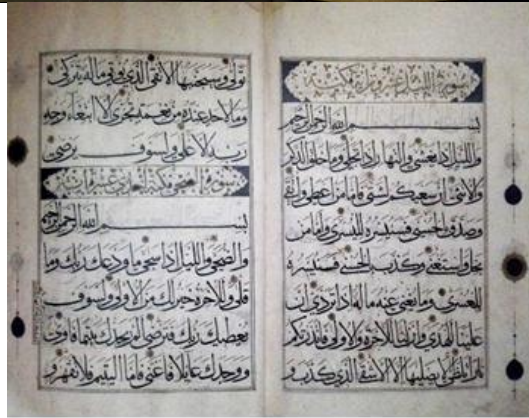 سورة الليل عشرون اية مكية
بسم الله الرحمن الرحيم
والليل اذا يغشى والنهار اذا تجلى وما خلق الذكر
والانثى ان سعيكم لشتى فاما من اعطى واتقى
وصدق بالحسنى فسنيسره لليسرى واما من
بخل واستغنى وكذب بالحسنى فسنيسره
للعسرى وما يغني عنه ماله اذا تردى ان
علينا للهدى وان لنا للاخرة والاولى فانذرتكم
نارا تلظى لا يصليها الا الاشقى الذي كذب و
تولى وسيجنبها الاتقى الذي يؤتي ماله يتزكى
وما لاحد عنده من نعمة تجزى الا ابتغاء وجه
ربه الاعلى ولسوف يرضى
سورة الضحى مكية
بسم الله الرحمن الرحيم
والضحى والليل اذا سجى ما ودعك ربك وما
قلى وللاخرة خير لك من الاولى ولسوف
يعطيك ربك فترضى الم يجدك يتيما فاوى
ووجدك عايلا فاغنى فاما اليتيم فلا تقهر و